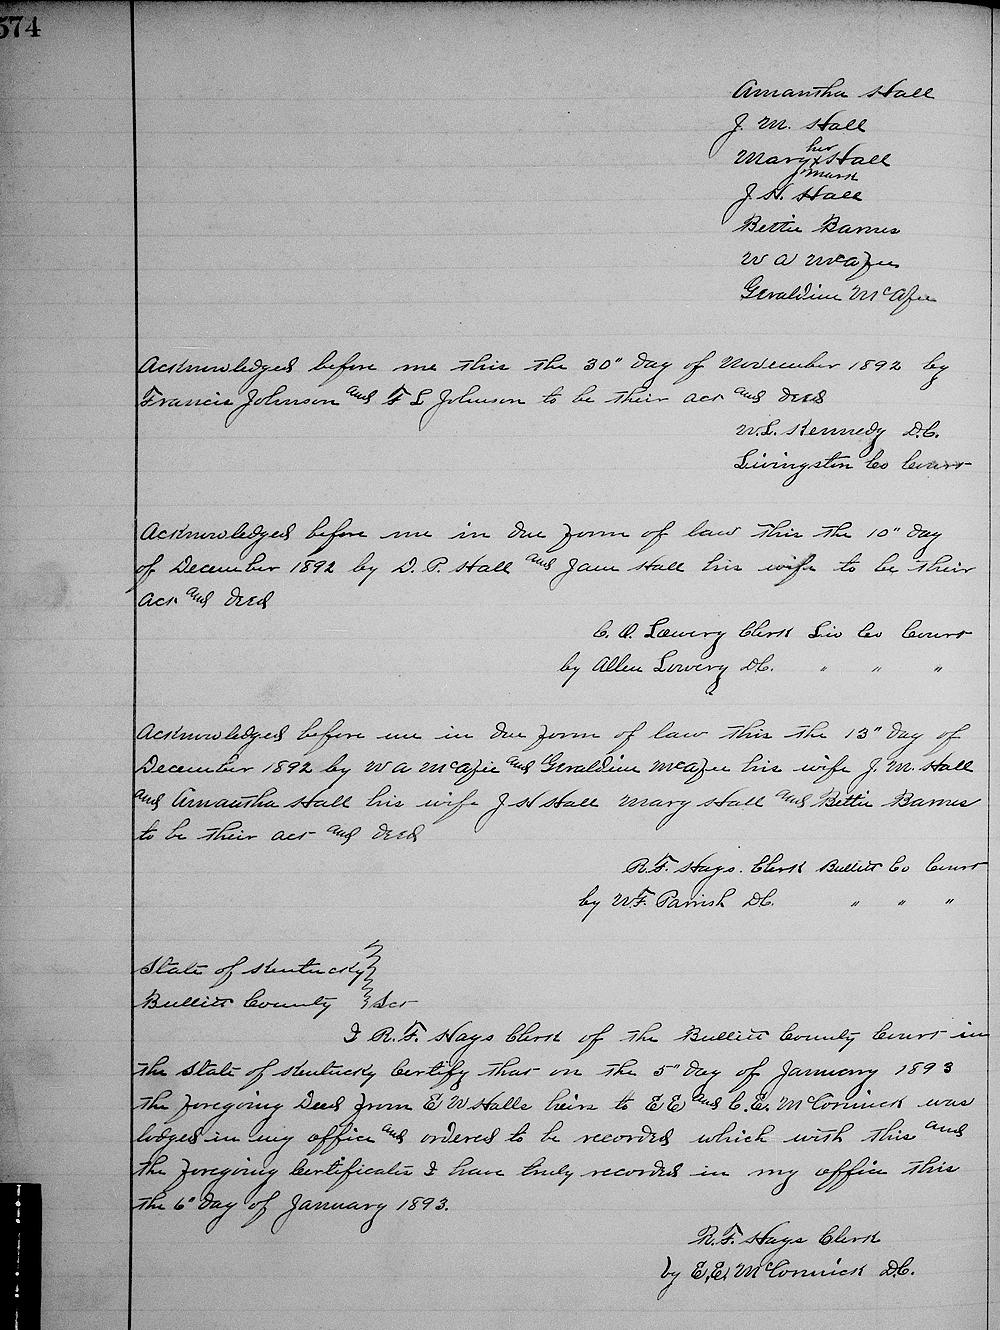 574
Amantha Hall
J. M. Hall
her
Mary x Hall
mark
J. H. Hall
Bettie Barnes
W A McAfee
Geraldine McAfee
Acknowledged before me this the 30" day of November 1892 by
Francis Johnson and F L Johnson to be their act and deed
W. L. Kennedy D.C.
Livingston Co Court
Acknowledged before me in due form of law this the 10" day
of December 1892 by D. P. Hall and Jane Hall his wife to be their
act and deed
C. O. Lowery Clerk Liv Co Court
by Allen Lowery DC. " " "
Acknowledged before me in due form of law this the 13" day of
December 1892 by W A McAfee and Geraldine McAfee his wife J. M. Hall
and Amantha Hall his wife J H Hall Mary Hall and Bettie Barnes
to be their act and deed
R. F. Hays. Clerk Bullitt Co Court
by W F. Parrish DC. " " "
State of Kentucky
Bullitt County } Sct
I R. F. Hays Clerk of the Bullitt County Court in
the State of Kentucky Certify that on the 5" day of January 1893
the foregoing Deed from E W Halls heirs to E E and C. E. McCormick was
lodged in my office and ordered to be recorded which with this and
the foregoing Certificates I have truly recorded in my office this
the 6" day of January 1893.
R. F. Hays Clerk
by E. E. McCormick D.C.